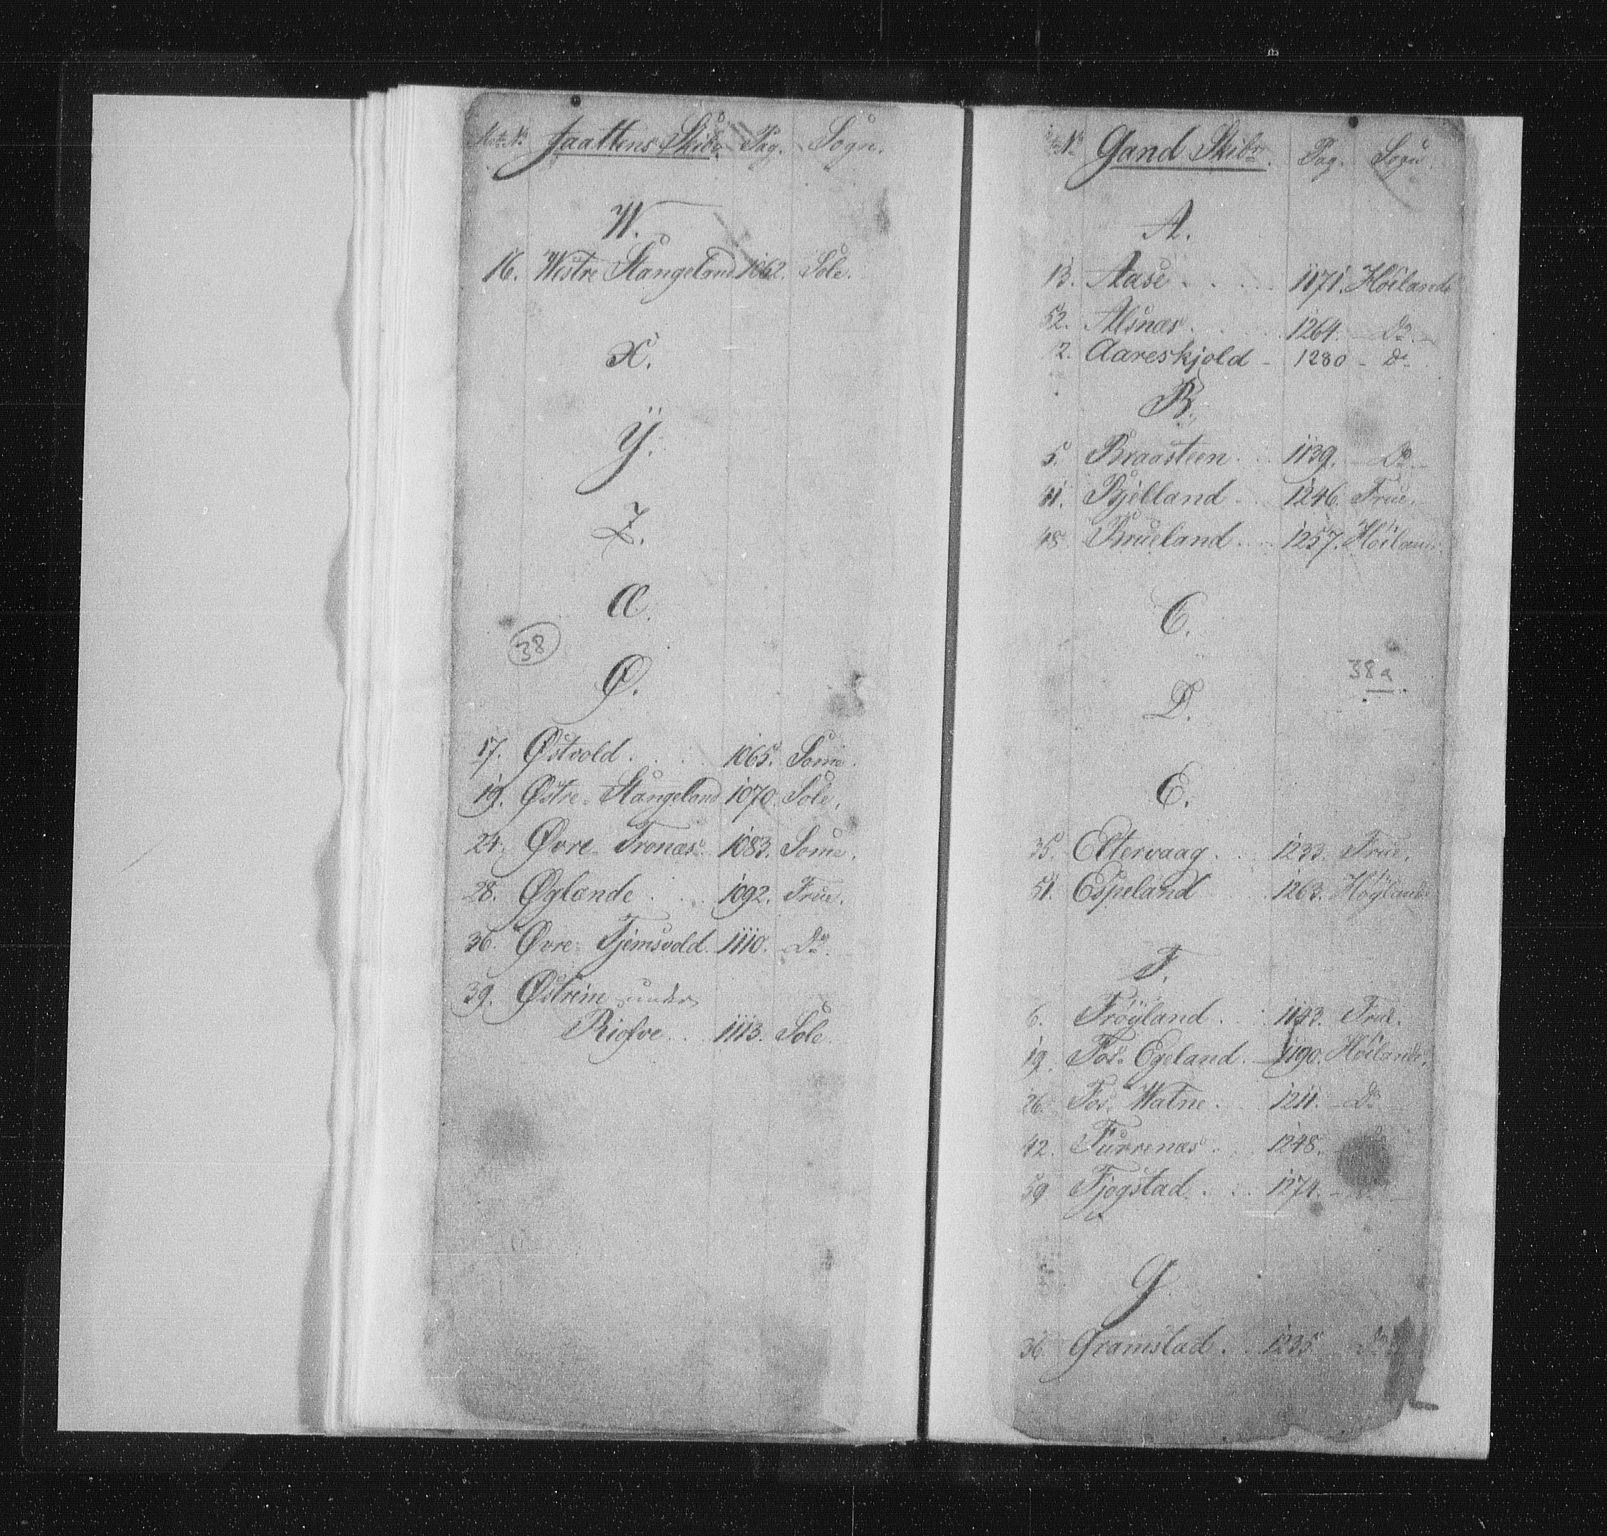 Matr. No. Jaattens Skibr. Pag. Sogn.
W.
16. Westre Stangeland 1062. Sole.
X.
Y.
Z.
Æ.
38
Ø.
17. Østvold . . . 1065. Somme.
19. Østre Stangeland 1070. Sole.
24. Øvre Tronæs. 1083. Somme.
28. Øglænde . . . 1092. Frue.
36. Øvre Tjemsvold. 1110. Do.
39. Østreim under
Riofve . . 1113. Sole.
No. Gand Skibr. Pag. Sogn.
A.
13. Aase . . . . 1171. Höilands
52. Alsnæs. . . 1264. Do.
2. Aareskjold - 1280 - Do
B.
5. Braasteen . . 1139. Do.
41. Bjelland . . 1246. Frue.
48. Brueland . . 1257. Höilands.
C.
38a
D.
E.
35. Eltervaag . . 1233. Frue.
51. Espeland 1263. Höylands
F.
6. Fröyland . . 1143. Frue.
19. Fos-Egeland . 1190. Höilands.
26. Fos-Watne . . 1211. Do
42. Furrenæs . . 1248.
59. Fjogstad . . . 1274.
G.
36. Gramstad . . 1235 Do